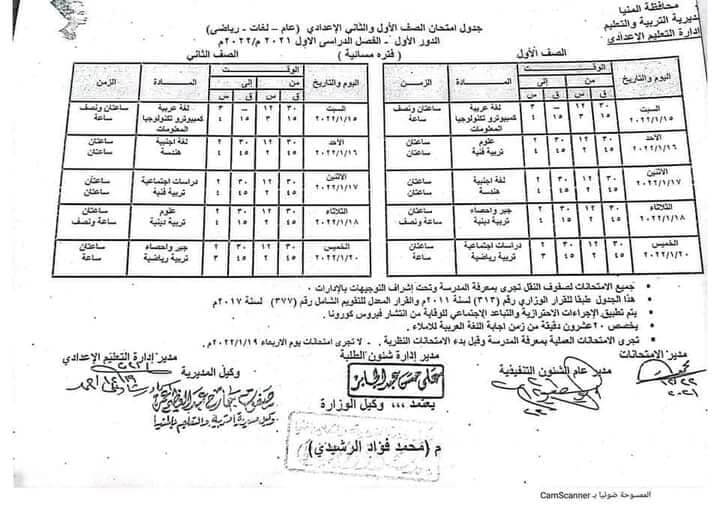 محافظة المنيا
مديرية التربية والتعليم
إدارة التعليم الإعدادى
جدول امتحان الصف الأول والثاني الإعدادي (عام – لغات - رياضى)
الدور الأول - الفصل الدراسى الأول ٢٠٢١ م/٢٠٢٢م
( فتره مسائية )
الصف الأول
اليوم والتاريخ | الوقت | المادة | الزمن
من | إلى
ق | س | ق | س
السبت ٢٠٢٢/١/١٥ | ٣٠ | ١٢ | – | ٣ | لغة عربية | ساعتان ونصف
١٥ | ٣ | ١٥ | ٤ | كمبيوترو تكنولوجيا المعلومات | ساعة
الأحد ٢٠٢٢/١/١٦ | ٣٠ | ١٢ | ٣٠ | ٢ | علوم | ساعتان
٤٥ | ٢ | ٤٥ | ٤ | تربية فنية | ساعتان
الأثنين ٢٠٢٢/١/١٧ | ٣٠ | ١٢ | ٣٠ | ٢ | لغة اجنبية | ساعتان
٤٥ | ٢ | ٤٥ | ٤ | هندسة | ساعتان
الثلاثاء ٢٠٢٢/١/١٨ | ٣٠ | ١٢ | ٣٠ | ٢ | جبر واحصاء | ساعتان
٤٥ | ٢ | ١٥ | ٤ | تربية دينية | ساعة ونصف
الخميس ٢٠٢٢/١/٢٠ | ٣٠ | ١٢ | ٣٠ | ٢ | دراسات اجتماعية | ساعتان
٤٥ | ٢ | ٤٥ | ٣ | تربية رياضية | ساعة
الصف الثاني
اليوم والتاريخ | الوقت | المادة | الزمن
من | إلى
ق | س | ق | س
السبت ٢٠٢٢/١/١٥ | ٣٠ | ١٢ | – | ٣ | لغة عربية | ساعتان ونصف
١٥ | ٣ | ١٥ | ٤ | كمبيوترو تكنولوجيا المعلومات | ساعة
الأحد ٢٠٢٢/١/١٦ | ٣٠ | ١٢ | ٣٠ | ٢ | لغة اجنبية | ساعتان
٤٥ | ٢ | ٤٥ | ٤ | هندسة | ساعتان
الأثنين ٢٠٢٢/١/١٧ | ٣٠ | ١٢ | ٣٠ | ٢ | دراسات اجتماعية | ساعتان
٤٥ | ٢ | ٤٥ | ٤ | تربية فنية | ساعتان
الثلاثاء ٢٠٢٢/١/١٨ | ٣٠ | ١٢ | ٣٠ | ٢ | علوم | ساعتان
٤٥ | ٢ | ١٥ | ٤ | تربية دينية | ساعة ونصف
الخميس ٢٠٢٢/١/٢٠ | ٣٠ | ١٢ | ٣٠ | ٢ | جبر واحصاء | ساعتان
٤٥ | ٢ | ٤٥ | ٣ | تربية رياضية | ساعة
• جميع الامتحانات لصفوف النقل تجرى بمعرفة المدرسة وتحت إشراف التوجيهات بالإدارات .
• هذا الجدول طبقا للقرار الوزاري رقم (٣١٣) لسنة ٢٠١١م والقرار المعدل للتقويم الشامل رقم (٣٧٧) لسنة ٢٠١٧م
• يتم تطبيق الإجراءات الاحترازية والتباعد الإجتماعي للوقاية من انتشار فيروس كورونا .
• يخصص ٢٠ عشرون دقيقة من زمن اجابة اللغة العربية للاملاء .
• تجرى الامتحانات العملية بمعرفة المدرسة وقبل بدء الامتحانات النظرية . - لا تجرى امتحانات يوم الاربعاء ٢٠٢٢/١/١٩م
مدير الامتحانات
مدير عام الشئون التنفيذية
مدير إدارة شئون الطلبة
علي حسن عبد الجابر
وكيل المديرية
مدير إدارة التعليم الإعدادي
يعتمد ,,, وكيل الوزارة
م (محمد فؤاد الرشيدي)
وكيل مديرية التربية والتعليم بالمنيا
الممسوحة ضوئيا بـ CamScanner